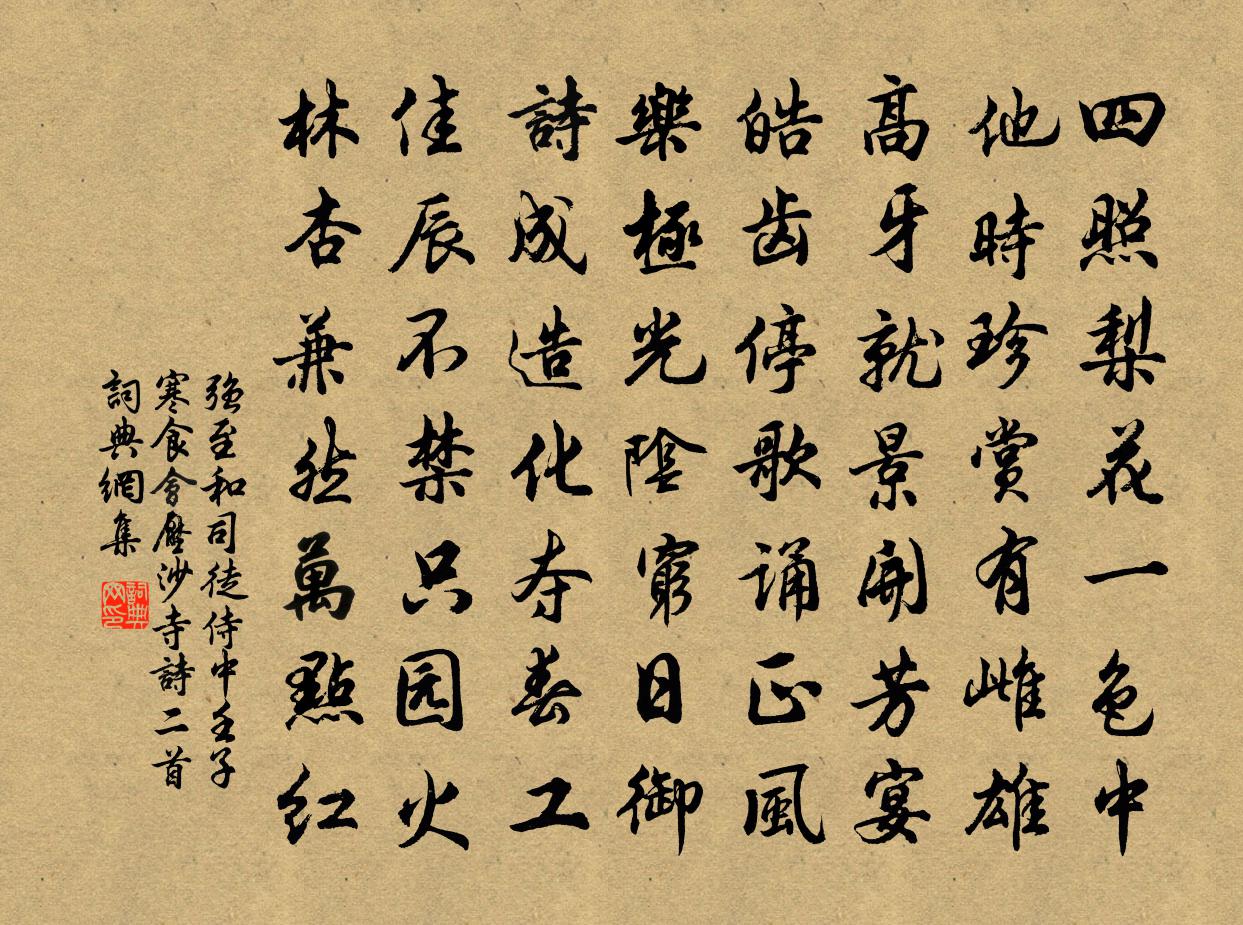 四照梨花一色中
他時珍賞有雌雄
高牙就景開芳宴
皓齿停歌诵正風
樂極光陰窮日御
詩成造化夺春工
佳辰不禁只园火
林杏兼然萬點紅
强至和司徒侍中壬子
寒食會壓沙寺詩二首
詞典網集
詞典网印